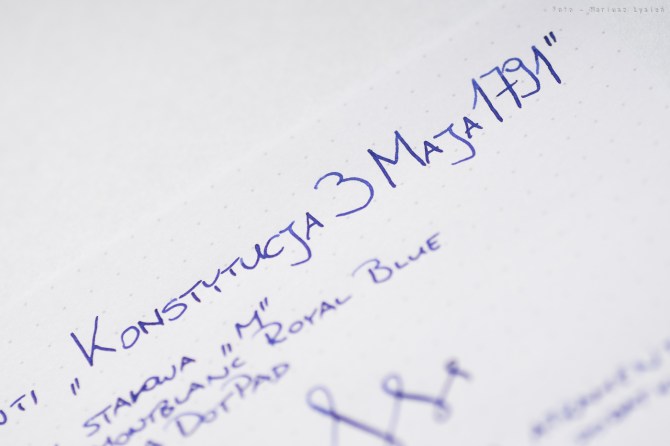 Foto - Mariusz Łysień
"Konstytucja 3 Maja 1791"
Stalowa „M"
Montblanc Royal Blue
DotPad